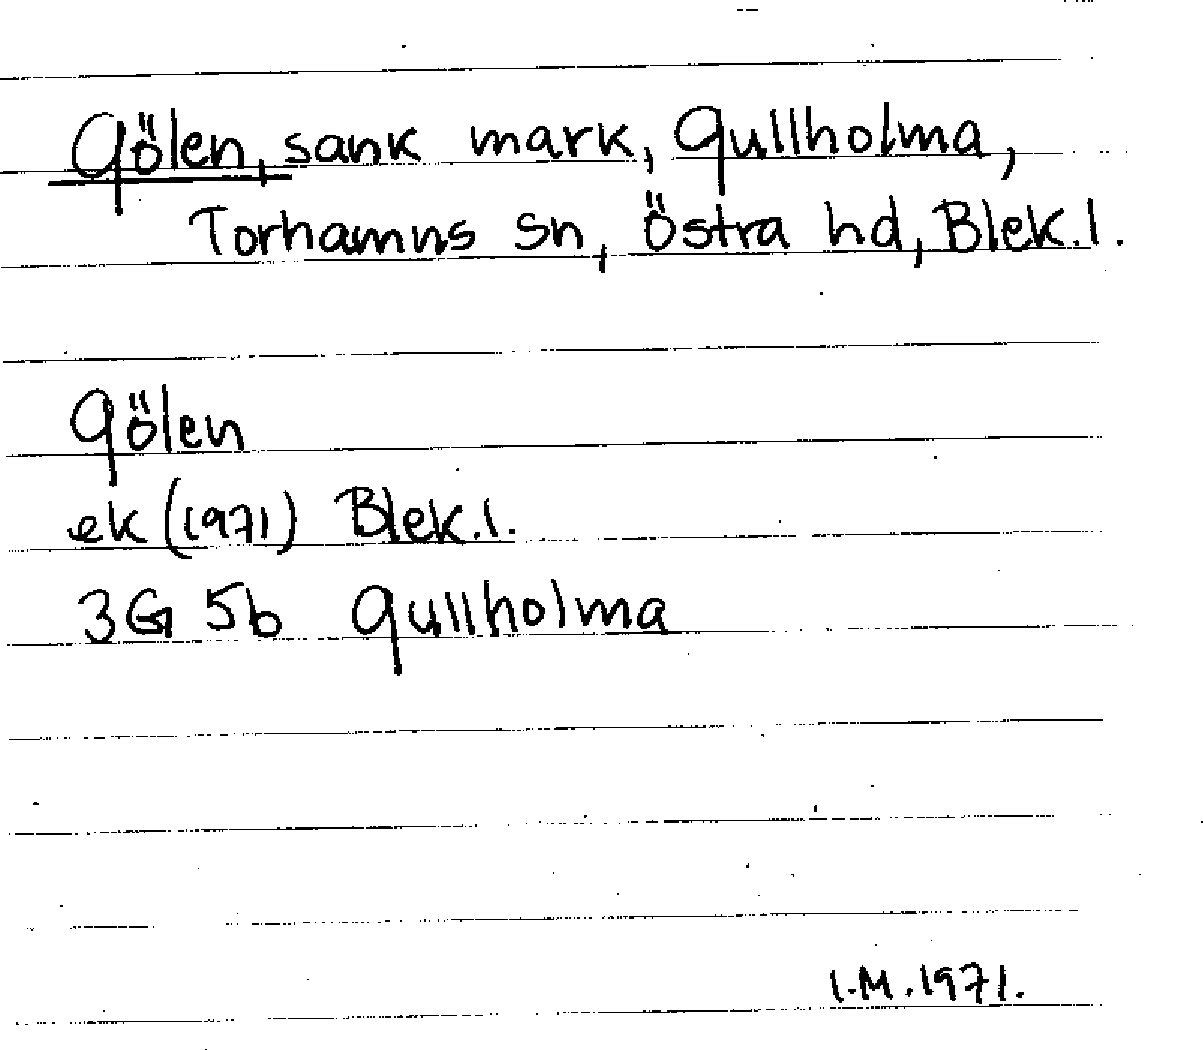 Gölen, sank mark, Gullholma,
Torhamns sn, Östra hd, Blek.l.
Gölen
ek (1971) Blek.l.
3G 5b Gullholma
I.M.1971.